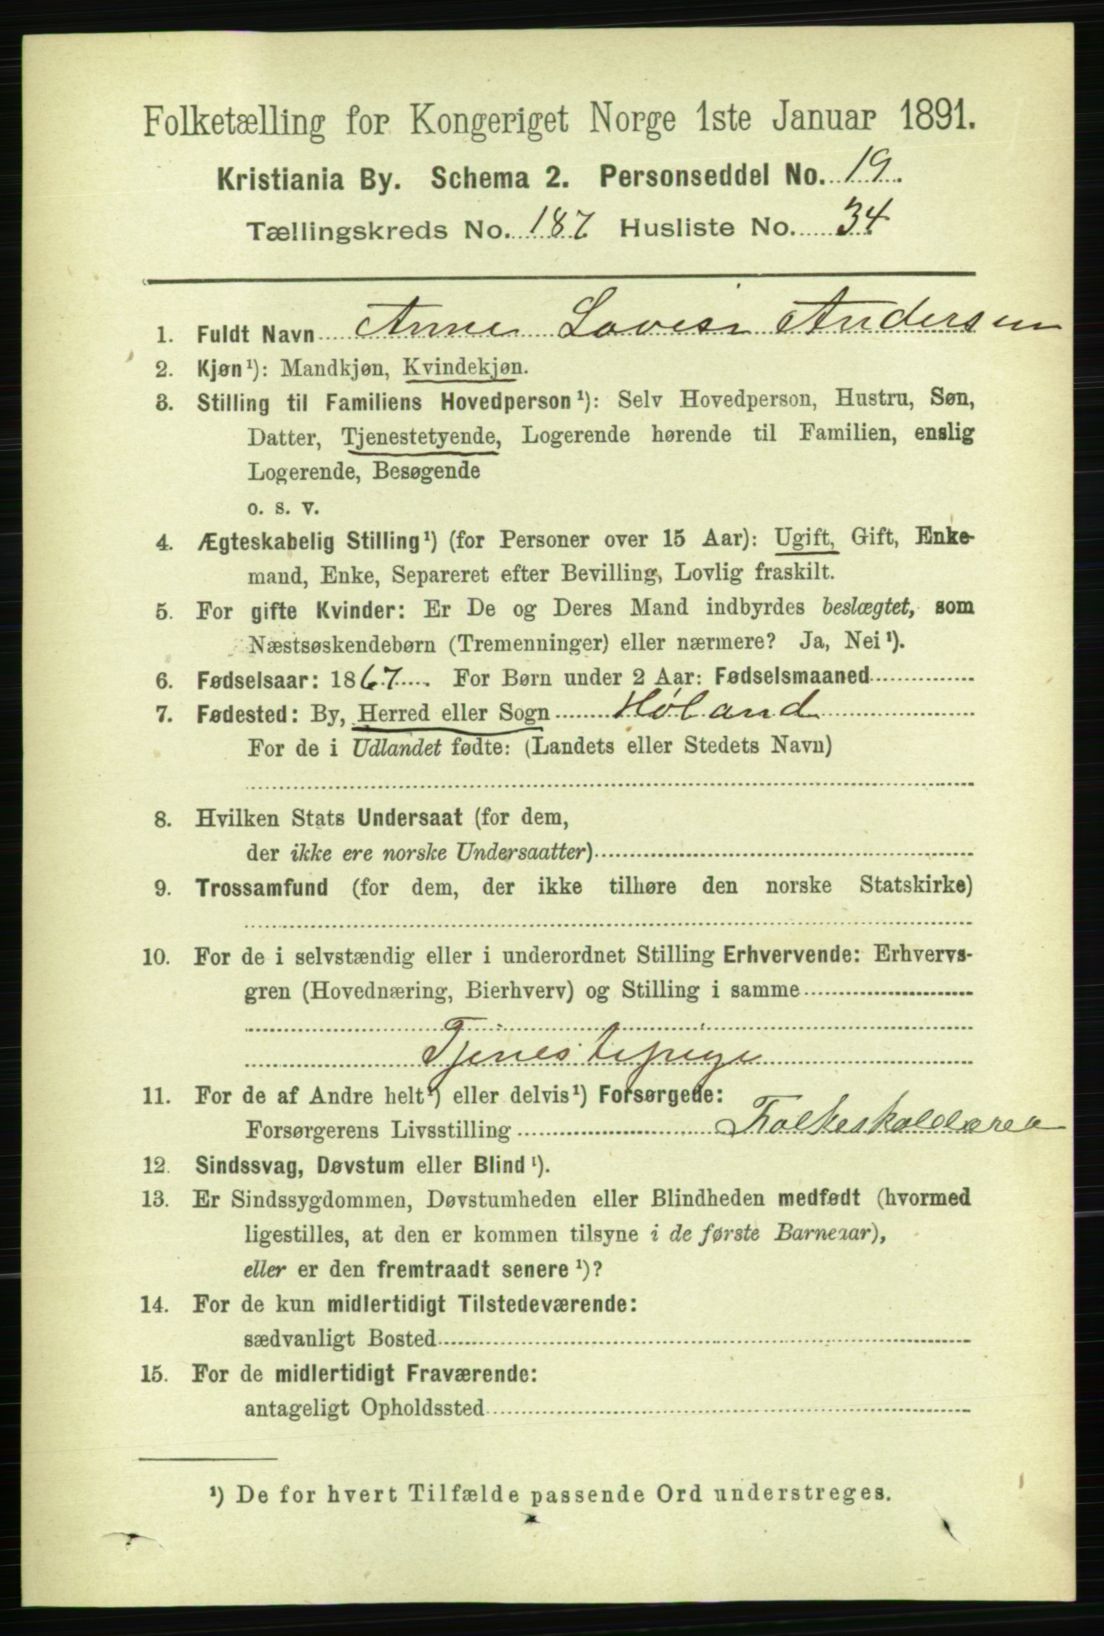 Folketælling for Kongeriget Norge 1ste Januar 1891.
Kristiania By. Schema 2. Personseddel No. 19.
Tællingskreds No. 187 Husliste No. 34
1. Fuldt Navn Anne Lovise Andersen
2. Kjøn¹): Mandkjøn, Kvindekjøn.
3. Stilling til Familiens Hovedperson¹): Selv Hovedperson, Hustru, Søn,
Datter, Tjenestetyende, Logerende hørende til Familien, enslig
Logerende, Besøgende
o. s. v.
4. Ægteskabelig Stilling¹) (for Personer over 15 Aar): Ugift, Gift, Enke-
mand, Enke, Separeret efter Bevilling, Lovlig fraskilt.
5. For gifte Kvinder: Er De og Deres Mand indbyrdes beslægtet, som
Næstsøskendebørn (Tremenninger) eller nærmere? Ja, Nei¹).
6. Fødselsaar: 1867. For Børn under 2 Aar: Fødselsmaaned
7. Fødested: By, Herred eller Sogn Høland
For de i Udlandet fødte: (Landets eller Stedets Navn)
8. Hvilken Stats Undersaat (for dem,
der ikke ere norske Undersaatter)
9. Trossamfund (for dem, der ikke tilhøre den norske Statskirke)
10. For de i selvstændig eller i underordnet Stilling Erhvervende: Erhvervs-
gren (Hovednæring, Bierhverv) og Stilling i samme
Tjenestepige
11. For de af Andre helt¹) eller delvis¹) Forsørgede:
Forsørgerens Livsstilling Folkeskolelærea
12. Sindssvag, Døvstum eller Blind¹).
13. Er Sindssygdommen, Døvstumheden eller Blindheden medfødt (hvormed
ligestilles, at den er kommen tilsyne i de første Barneaar),
eller er den fremtraadt senere¹)?
14. For de kun midlertidigt Tilstedeværende:
sædvanligt Bosted
15. For de midlertidigt Fraværende:
antageligt Opholdssted
¹) De for hvert Tilfælde passende Ord understreges.